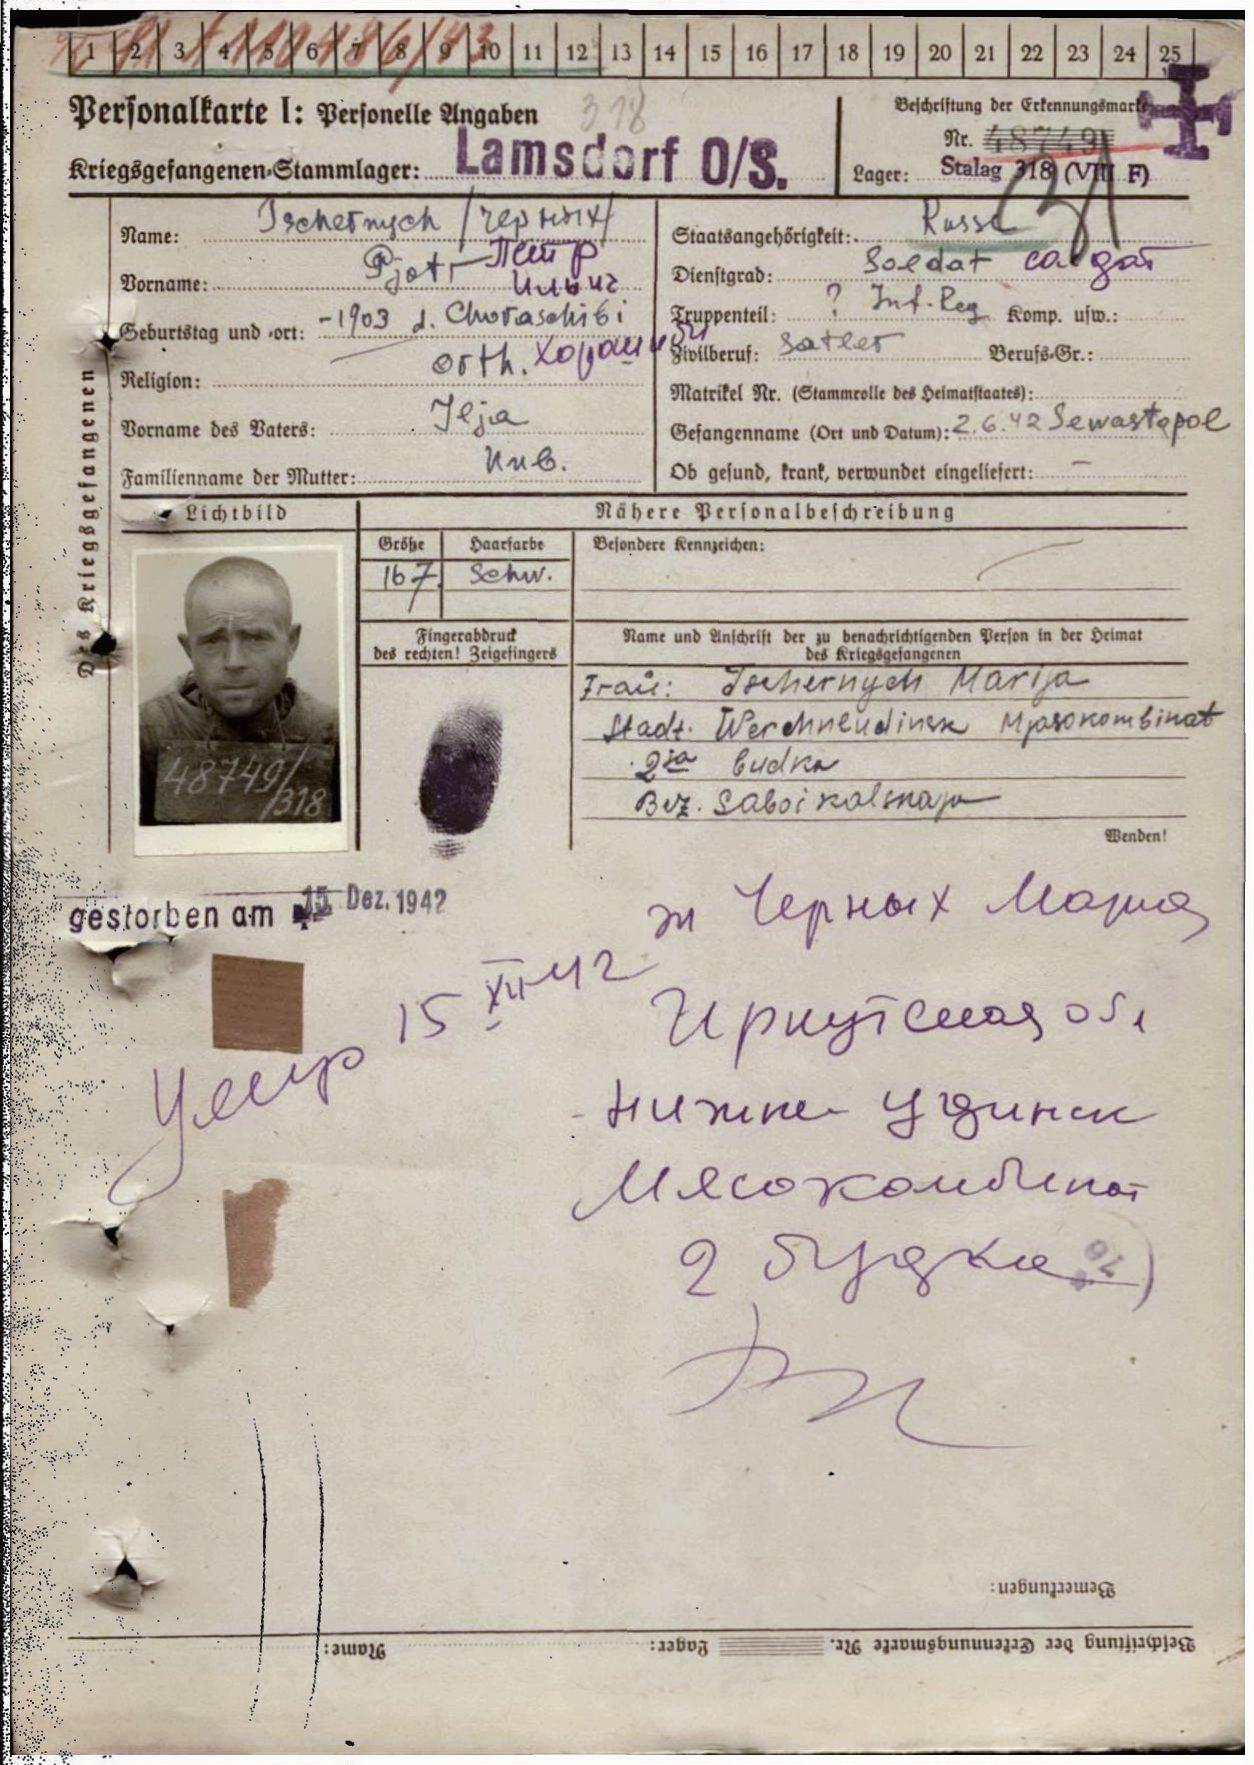 1 2 3 4 5 6 7 8 9 10 11 12 13 14 15 16 17 18 19 20 21 22 23 24 25
Personalkarte I: Personelle Angaben
318
Beschriftung der Erkennungsmarke
Nr. 48749
Kriegsgefangenen-Stammlager: Lamsdorf O/S.
Lager: Stalag 318 (VIII F)
Des Kriegsgefangenen
Name: Tschernych /Черных/
Vorname: Pjotr Петр
Ильич
Geburtstag und -ort: -1903 d. Choraschibi
Хорашиби
Religion: orth.
Vorname des Vaters: Ilja
Familienname der Mutter: Unb.
Staatsangehörigkeit: Russe
Dienstgrad: Soldat солдат
Truppenteil: ? Inf. Reg Komp. usw.:
Zivilberuf: Satler Berufs-Gr.:
Matrikel Nr. (Stammrolle des Heimatstaates):
Gefangenname (Ort und Datum): 2.6.42 Sewastopol
Ob gesund, krank, verwundet eingeliefert: –
Lichtbild
Nähere Personalbeschreibung
Größe Haarfarbe Besondere Kennzeichen:
167 schw.
Fingerabdruck
des rechten! Zeigefingers
Name und Anschrift der zu benachrichtigenden Person in der Heimat
des Kriegsgefangenen
Frau: Tschernych Marija
Stadt. Werchneudinsk Mjasokombinat
2ja budka
Bez. Saboikalskaja
Wenden!
48749/
/318
gestorben am 15. Dez. 1942
Умер 15 XII 42
ж Черных Мария
Иркутская обл
Нижне-Удинск
Мясокомбинат
2 будка
Bemerkungen:
Beschriftung der Erkennungsmarke Nr. Lager: Name: